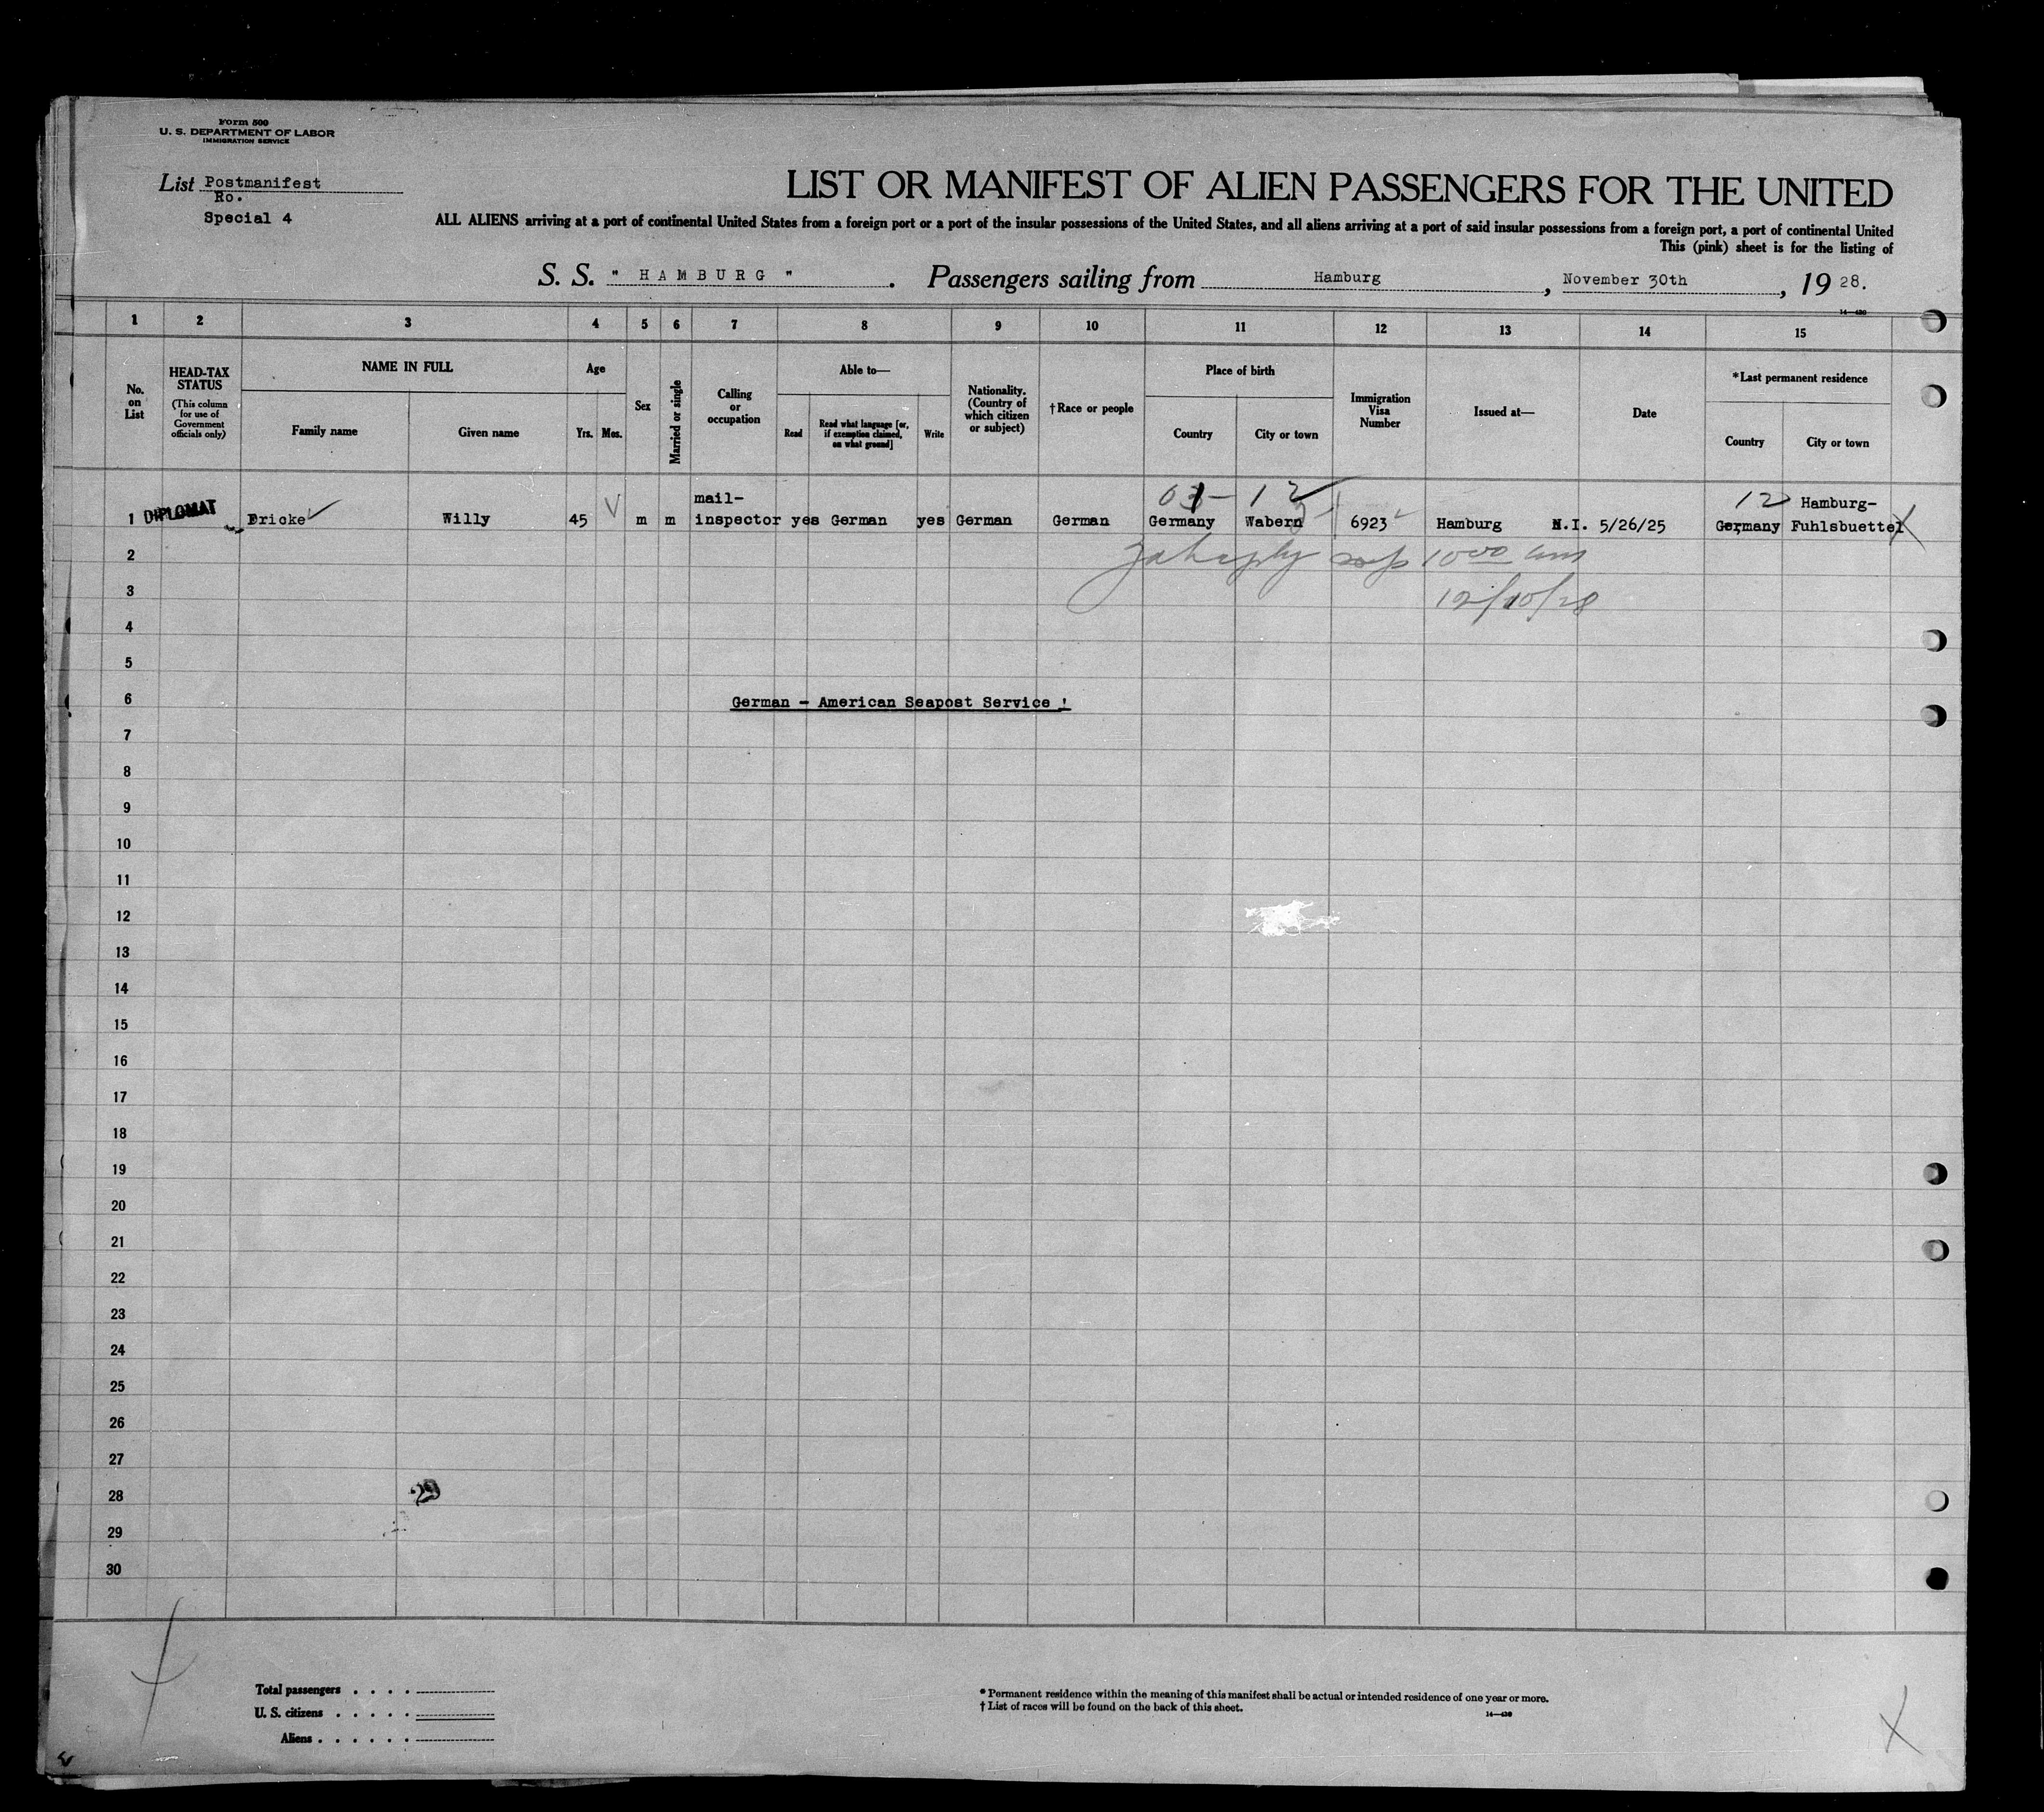 Form 500
U. S. DEPARTMENT OF LABOR
IMMIGRATION SERVICE
List Postmanifest
Ro.
Special 4
LIST OR MANIFEST OF ALIEN PASSENGERS FOR THE UNITED
ALL ALIENS arriving at a port of continental United States from a foreign port or a port of the insular possessions of the United States, and all aliens arriving at a port of said insular possessions from a foreign port, a port of continental United
This (pink) sheet is for the listing of
S. S. " HAMBURG " . Passengers sailing from Hamburg , November 30th , 19 28.
14—430
1 2 3 4 5 6 7 8 9 10 11 12 13 14 15
No. on List
HEAD-TAX STATUS
(This column for use of Government officials only)
NAME IN FULL
Family name
Given name
Age
Yrs. Mos.
Sex
Married or single
Calling or occupation
Able to—
Read
Read what language [or, if exemption claimed, on what ground]
Write
Nationality. (Country of which citizen or subject)
†Race or people
Place of birth
Country
City or town
Immigration Visa Number
Issued at—
Date
*Last permanent residence
Country
City or town
1 DIPLOMAT Fricke Willy 45 m m mail-inspector yes German yes German German Germany Wabern 6923 Hamburg N.I. 5/26/25 12 Germany Hamburg-Fuhlsbuettel
2
3 12/10/28
4
5
6 German - American Seapost Service !
7
8
9
10
11
12
13
14
15
16
17
18
19
20
21
22
23
24
25
26
27
28
29
30
Total passengers . . . .
U. S. citizens . . . . .
Aliens . . . . . .
* Permanent residence within the meaning of this manifest shall be actual or intended residence of one year or more.
† List of races will be found on the back of this sheet.
14—430